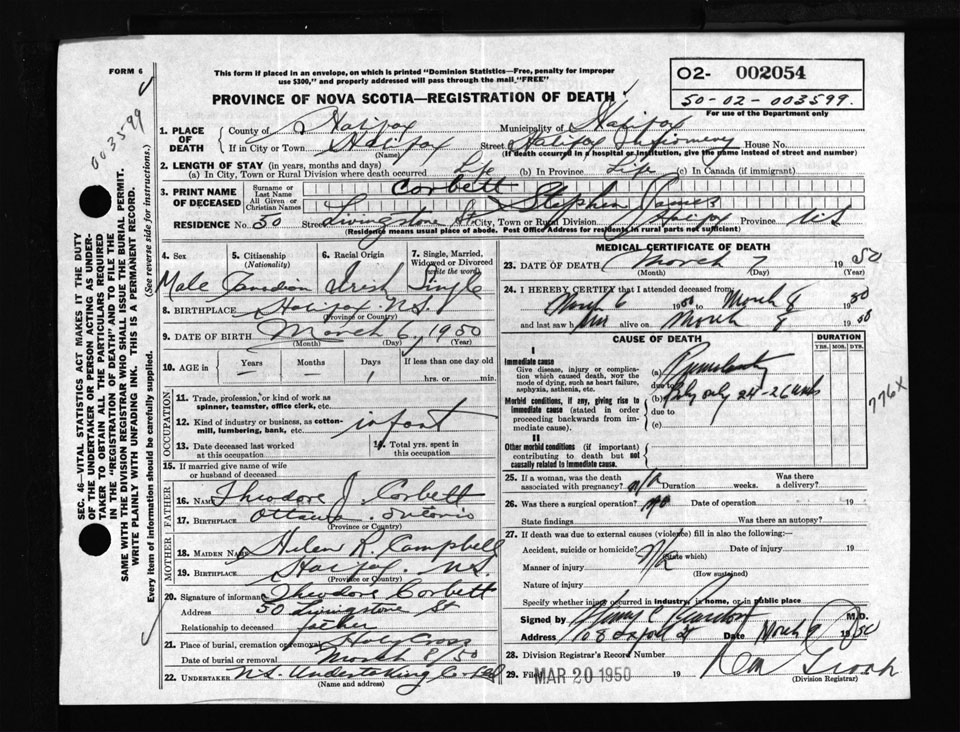 FORM 6
This form if placed in an envelope, on which is printed "Dominion Statistics—Free, penalty for improper
use $300," and properly addressed will pass through the mail "FREE"
02- 002054
50-02-003599.
For use of the Department only
PROVINCE OF NOVA SCOTIA—REGISTRATION OF DEATH
003599
1. PLACE OF DEATH
County of Halifax Municipality of Halifax
If in City or Town Halifax Street Halifax Infirmary House No.
(Name) (If death occurred in a hospital or institution, give the name instead of street and number)
2. LENGTH OF STAY (in years, months and days)
(a) In City, Town or Rural Division where death occurred Life (b) In Province Life (c) In Canada (if immigrant)
3. PRINT NAME OF DECEASED
Surname or Last Name Corbett
All Given or Christian Names Stephen James
RESIDENCE No. 50 Street Livingstone St. City, Town or Rural Division Halifax Province N.S.
(Residence means usual place of abode. Post Office Address for residents in rural parts not sufficient)
4. Sex 5. Citizenship (Nationality) 6. Racial Origin 7. Single, Married, Widowed or Divorced (write the word)
Male Canadian Irish Single
8. BIRTHPLACE Halifax N.S.
(Province or Country)
9. DATE OF BIRTH March 6, 1950
(Month) (Day) (Year)
10. AGE in Years Months Days If less than one day old
— — 1 hrs. or min.
OCCUPATION
11. Trade, profession, or kind of work as spinner, teamster, office clerk, etc.
12. Kind of industry or business, as cotton-mill, lumbering, bank, etc. infant
13. Date deceased last worked at this occupation
14. Total yrs. spent in this occupation
15. If married give name of wife or husband of deceased
FATHER
16. NAME Theodore J. Corbett
17. BIRTHPLACE Ottawa Ontario
(Province or Country)
MOTHER
18. MAIDEN NAME Helen R. Campbell
19. BIRTHPLACE Halifax N.S.
(Province or Country)
20. Signature of informant Theodore Corbett
Address 50 Livingstone St
Relationship to deceased father
21. Place of burial, cremation or removal Holy Cross
Date of burial or removal March 8/50
22. UNDERTAKER N.S. Undertaking Co. Ltd
(Name and address)
MEDICAL CERTIFICATE OF DEATH
23. DATE OF DEATH March 7 1950
(Month) (Day) (Year)
24. I HEREBY CERTIFY that I attended deceased from
March 6 1950 to March 8 1950
and last saw him alive on March 8 1950
CAUSE OF DEATH DURATION
YRS. MOS. DYS.
I
Immediate cause
Give disease, injury or complication which caused death, NOT the mode of dying, such as heart failure, asphyxia, asthenia, etc.
(a) Prematurity
due to
Morbid conditions, if any, giving rise to immediate cause (stated in order proceeding backwards from immediate cause).
(b) Baby only 24-26 wks
due to
(c)
II
Other morbid conditions (if important) contributing to death but not causally related to immediate cause.
776X
25. If a woman, was the death associated with pregnancy? n/a Duration weeks. Was there a delivery?
26. Was there a surgical operation? no Date of operation 19
State findings Was there an autopsy?
27. If death was due to external causes (violence) fill in also the following:
Accident, suicide or homicide? (State which) Date of injury 19
Manner of injury
(How sustained)
Nature of injury
Specify whether injury occurred in industry, in home, or in public place
Signed by M.D.
Address 108 Oxford St Date March 9 1950
28. Division Registrar's Record Number
29. Filed MAR 20 1950 19
(Division Registrar)
SEC. 46 VITAL STATISTICS ACT MAKES IT THE DUTY
OF THE UNDERTAKER OR PERSON ACTING AS UNDER-
TAKER TO OBTAIN ALL THE PARTICULARS REQUIRED
IN THE "REGISTRATION OF DEATH" AND TO FILE THE
SAME WITH THE DIVISION REGISTRAR WHO SHALL ISSUE THE BURIAL PERMIT.
WRITE PLAINLY WITH UNFADING INK. THIS IS A PERMANENT RECORD.
Every item of information should be carefully supplied. (See reverse side for instructions.)